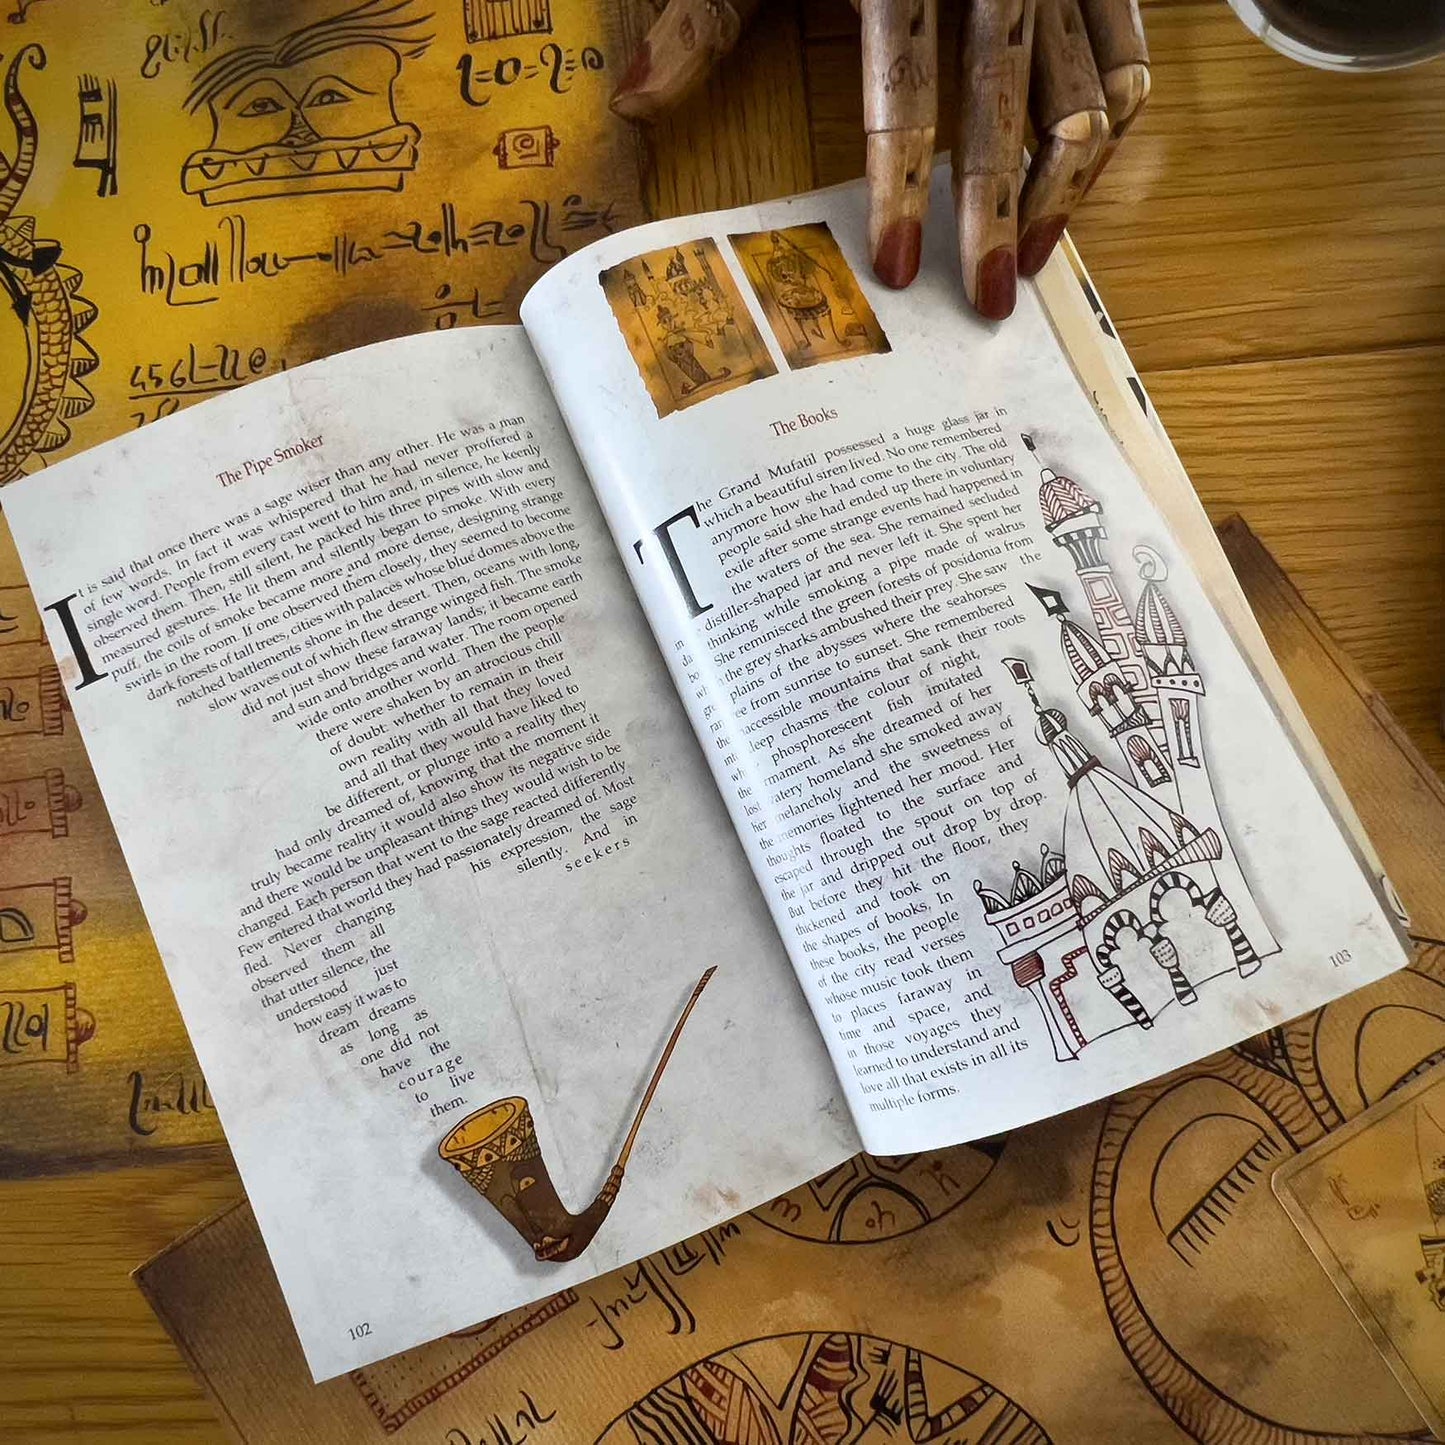 The Pipe Smoker
It is said that once there was a sage wiser than any other. He was a man
of few words. In fact it was whispered that he had never proffered a
single word. People from every cast went to him and, in silence, he keenly
observed them. Then, still silent, he packed his three pipes with slow and
measured gestures. He lit them and silently began to smoke. With every
puff, the coils of smoke became more and more dense, designing strange
swirls in the room. If one observed them closely, they seemed to become
dark forests of tall trees, cities with palaces whose blue domes above the
notched battlements shone in the desert. Then, oceans with long
slow waves out of which flew strange winged fish. The smoke
did not just show these faraway lands; it became earth
and sun and bridges and water. The room opened
wide onto another world. Then the people
there were shaken by an atrocious chill
of doubt: whether to remain in their
own reality with all that they loved
and all that they would have liked to
be different, or plunge into a reality they
had only dreamed of, knowing that the moment it
truly became reality it would also show its negative side
and there would be unpleasant things they would wish to be
changed. Each person that went to the sage reacted differently
Few entered that world they had passionately dreamed of. Most
fled. Never changing his expression, the sage
observed them all silently. And in
that utter silence, the seekers
understood just
how easy it was to
dream dreams
as long as
one did not
have the
courage
to live
them.
102
The Books
The Grand Mufatil possessed a huge glass jar in
which a beautiful siren lived. No one remembered
anymore how she had come to the city. The old
people said she had ended up there in voluntary
exile after some strange events had happened in
the waters of the sea. She remained secluded
distiller-shaped jar and never left it. She spent her
thinking while smoking a pipe made of walrus
She reminisced the green forests of posidonia from
the grey sharks ambushed their prey. She saw the
plains of the abysses where the seahorses
from sunrise to sunset. She remembered
accessible mountains that sank their roots
deep chasms the colour of night,
phosphorescent fish imitated
As she dreamed of her
watery homeland she smoked away
her melancholy and the sweetness of
the memories lightened her mood. Her
thoughts floated to the surface and
escaped through the spout on top of
the jar and dripped out drop by drop.
But before they hit the floor, they
thickened and took on
the shapes of books. In
these books, the people
of the city read verses
whose music took them
to places faraway in
time and space, and
in those voyages they
learned to understand and
love all that exists in all its
multiple forms.
103